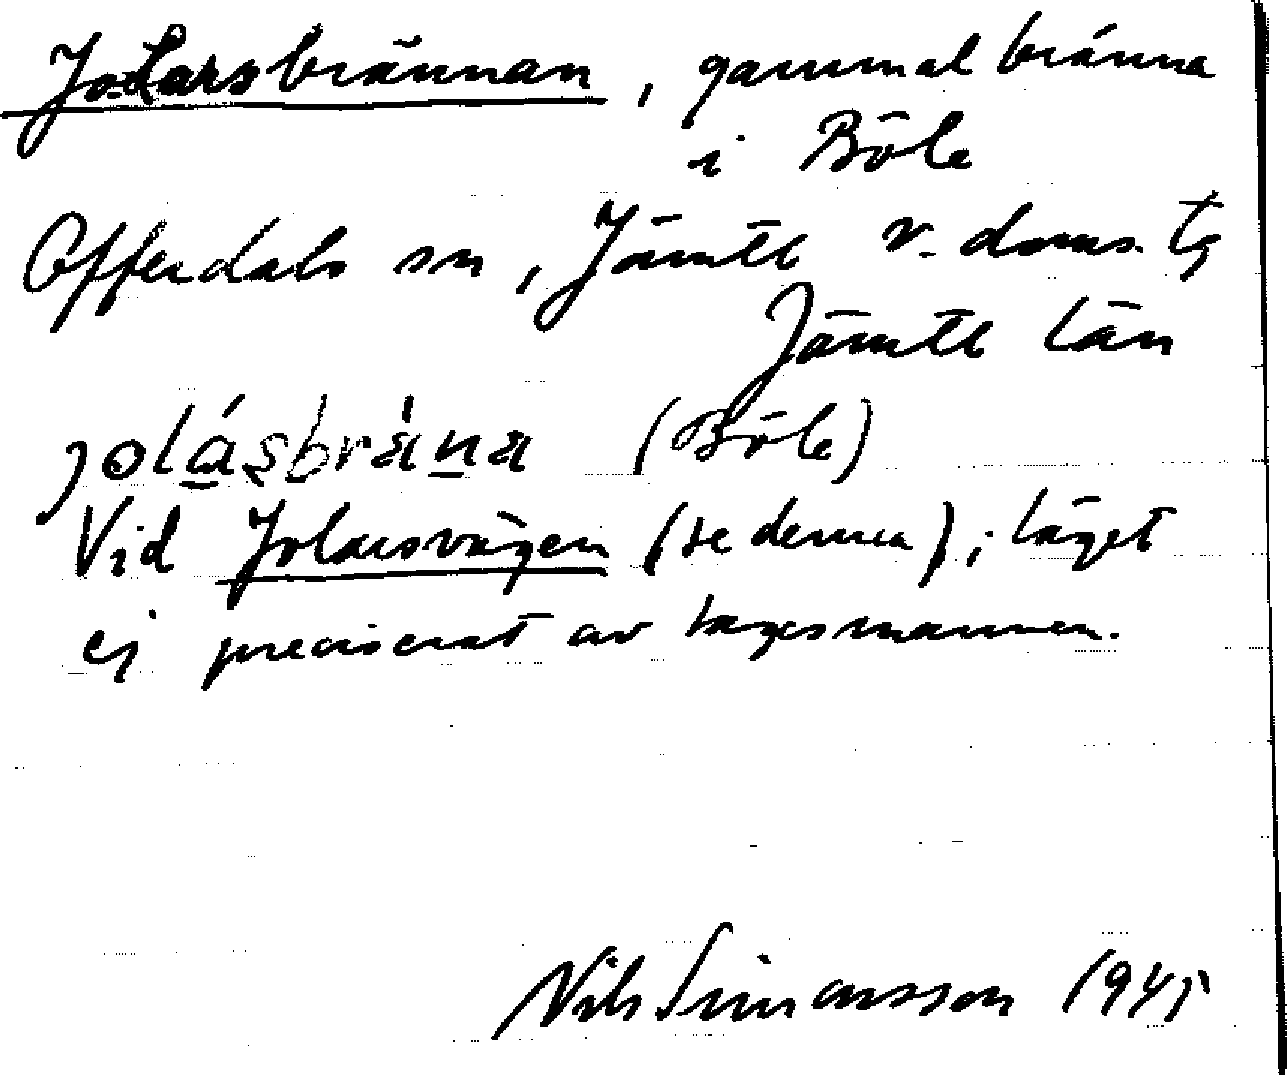 Jo-Larsbrännan, gammal bränna
i Böle
Offerdals sn, Jämtl v. doms. tg
Jämtl län
jolásbrána (Böle)
Vid Jolarsvägen (se denna), läget
ej preciserat av sagesmannen.
Nils Simonsson 1945